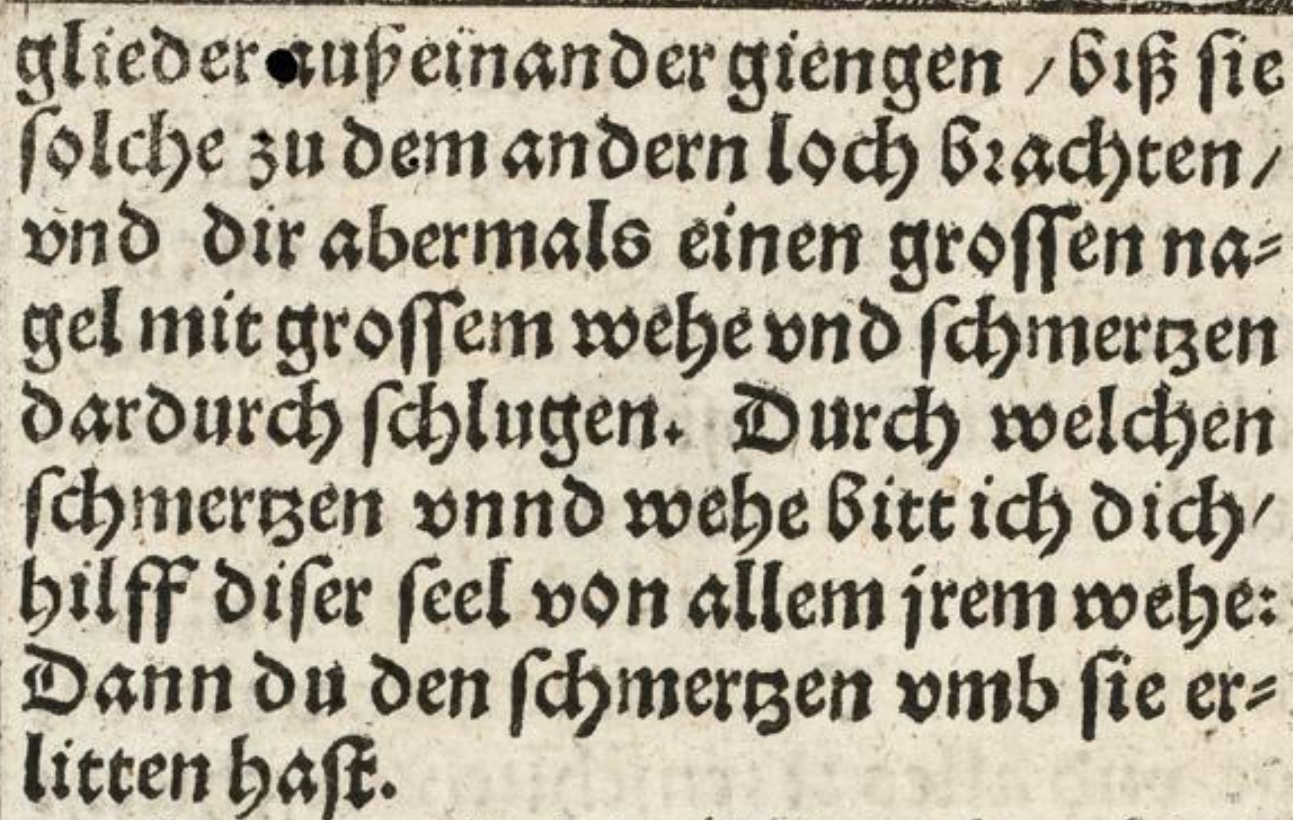 glieder außeinander giengen / biß sie
solche zu dem andern loch brachten /
vnd dir abermals einen grossen na-
gel mit grossem wehe vnd schmertzen
dardurch schlugen. Durch welchen
schmertzen vnnd wehe bitt ich dich /
hilff diser seel von allem jrem wehe:
Dann du den schmertzen vmb sie er-
litten hast.